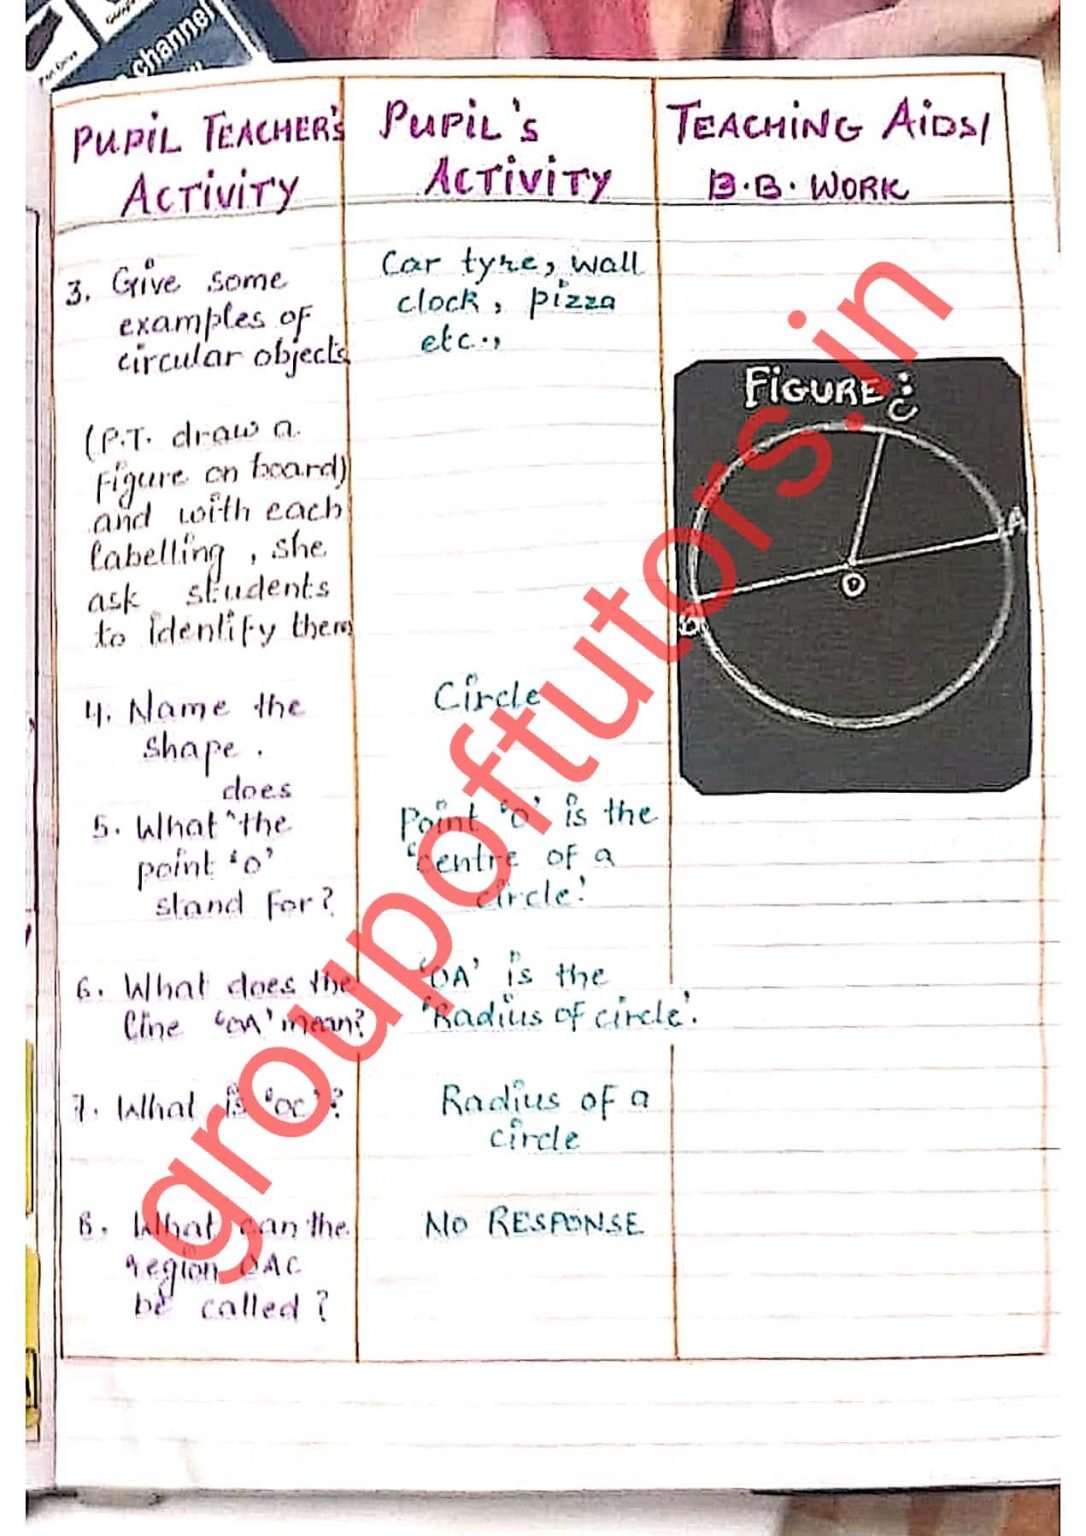 channel
PUPIL TEACHER'S
ACTIVITY
PUPIL'S
ACTIVITY
TEACHING AIDS/
B.B. WORK
3. Give some
examples of
circular objects
Car tyre, wall
clock, pizza
etc.,
(P.T. draw a
figure on board)
and with each
labelling, she
ask students
to identify them
FIGURE:
C
A
O
B
4. Name the
shape.
Circle
does
5. What ^ the
point 'O'
stand for?
Point 'O' is the
'centre of a
circle'.
6. What does the
line 'OA' mean?
'OA' is the
'Radius of circle'.
7. What is 'OC'?
Radius of a
circle
8. What can the
region OAC
be called?
NO RESPONSE
groupoftutors.in